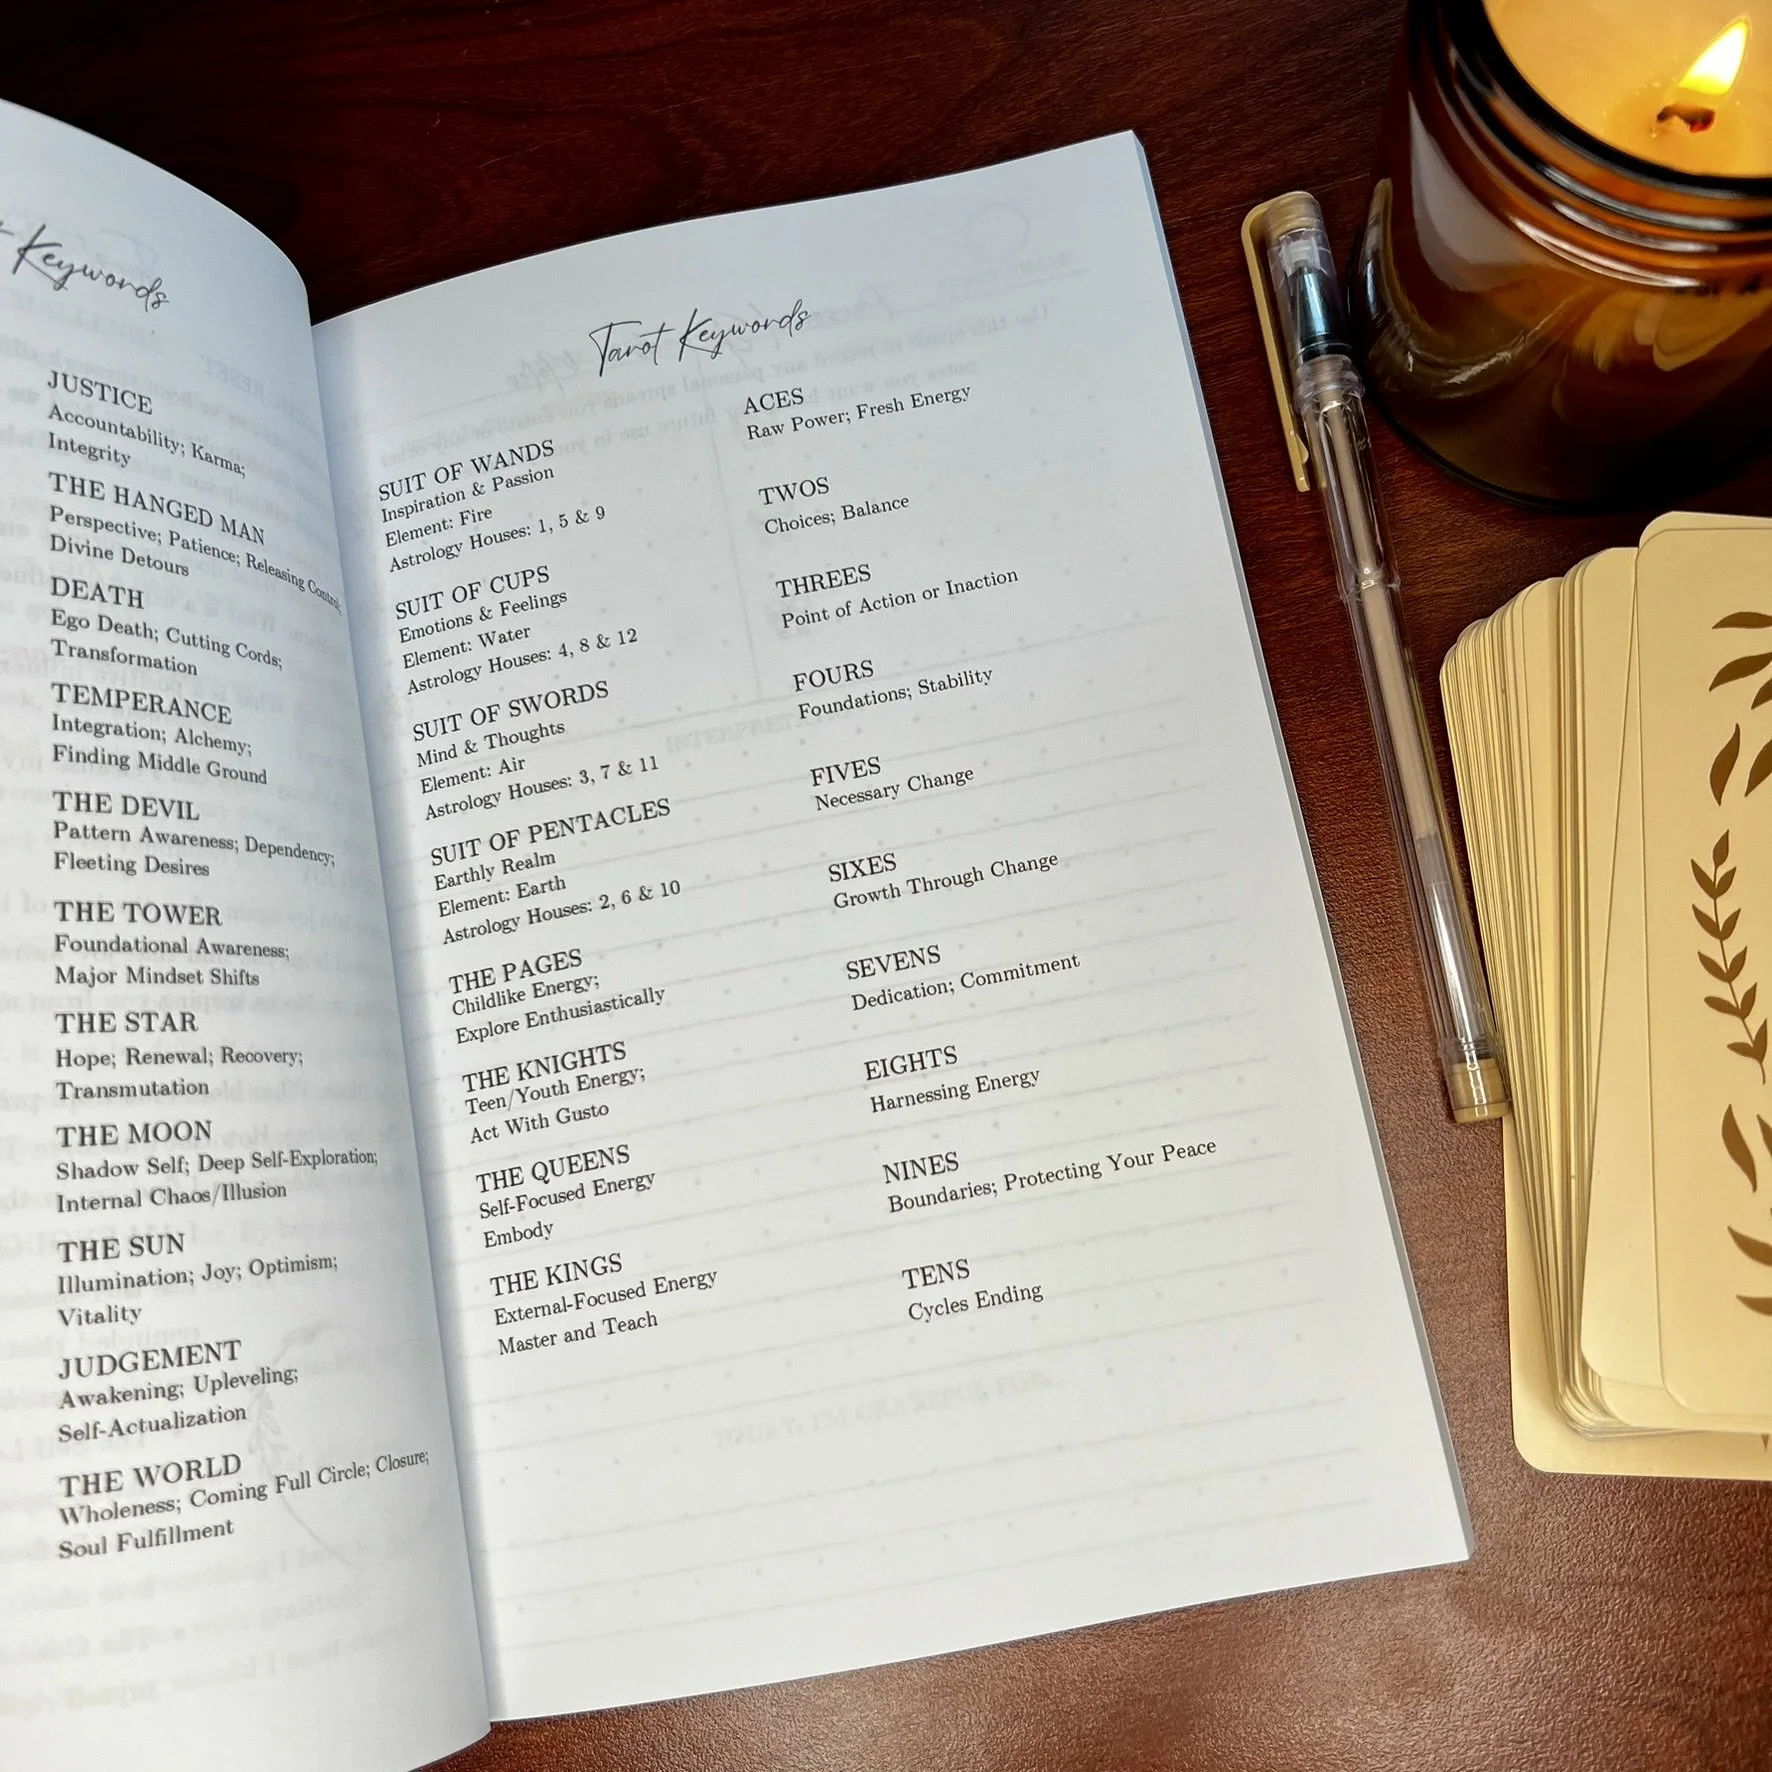 Keywords
JUSTICE
Accountability; Karma;
Integrity
THE HANGED MAN
Perspective; Patience; Releasing Control;
Divine Detours
DEATH
Ego Death; Cutting Cords;
Transformation
TEMPERANCE
Integration; Alchemy;
Finding Middle Ground
THE DEVIL
Pattern Awareness; Dependency;
Fleeting Desires
THE TOWER
Foundational Awareness;
Major Mindset Shifts
THE STAR
Hope; Renewal; Recovery;
Transmutation
THE MOON
Shadow Self; Deep Self-Exploration;
Internal Chaos/Illusion
THE SUN
Illumination; Joy; Optimism;
Vitality
JUDGEMENT
Awakening; Upleveling;
Self-Actualization
THE WORLD
Wholeness; Coming Full Circle; Closure;
Soul Fulfillment
Tarot Keywords
SUIT OF WANDS
Inspiration & Passion
Element: Fire
Astrology Houses: 1, 5 & 9
SUIT OF CUPS
Emotions & Feelings
Element: Water
Astrology Houses: 4, 8 & 12
SUIT OF SWORDS
Mind & Thoughts
Element: Air
Astrology Houses: 3, 7 & 11
SUIT OF PENTACLES
Earthly Realm
Element: Earth
Astrology Houses: 2, 6 & 10
THE PAGES
Childlike Energy;
Explore Enthusiastically
THE KNIGHTS
Teen/Youth Energy;
Act With Gusto
THE QUEENS
Self-Focused Energy
Embody
THE KINGS
External-Focused Energy
Master and Teach
ACES
Raw Power; Fresh Energy
TWOS
Choices; Balance
THREES
Point of Action or Inaction
FOURS
Foundations; Stability
FIVES
Necessary Change
SIXES
Growth Through Change
SEVENS
Dedication; Commitment
EIGHTS
Harnessing Energy
NINES
Boundaries; Protecting Your Peace
TENS
Cycles Ending